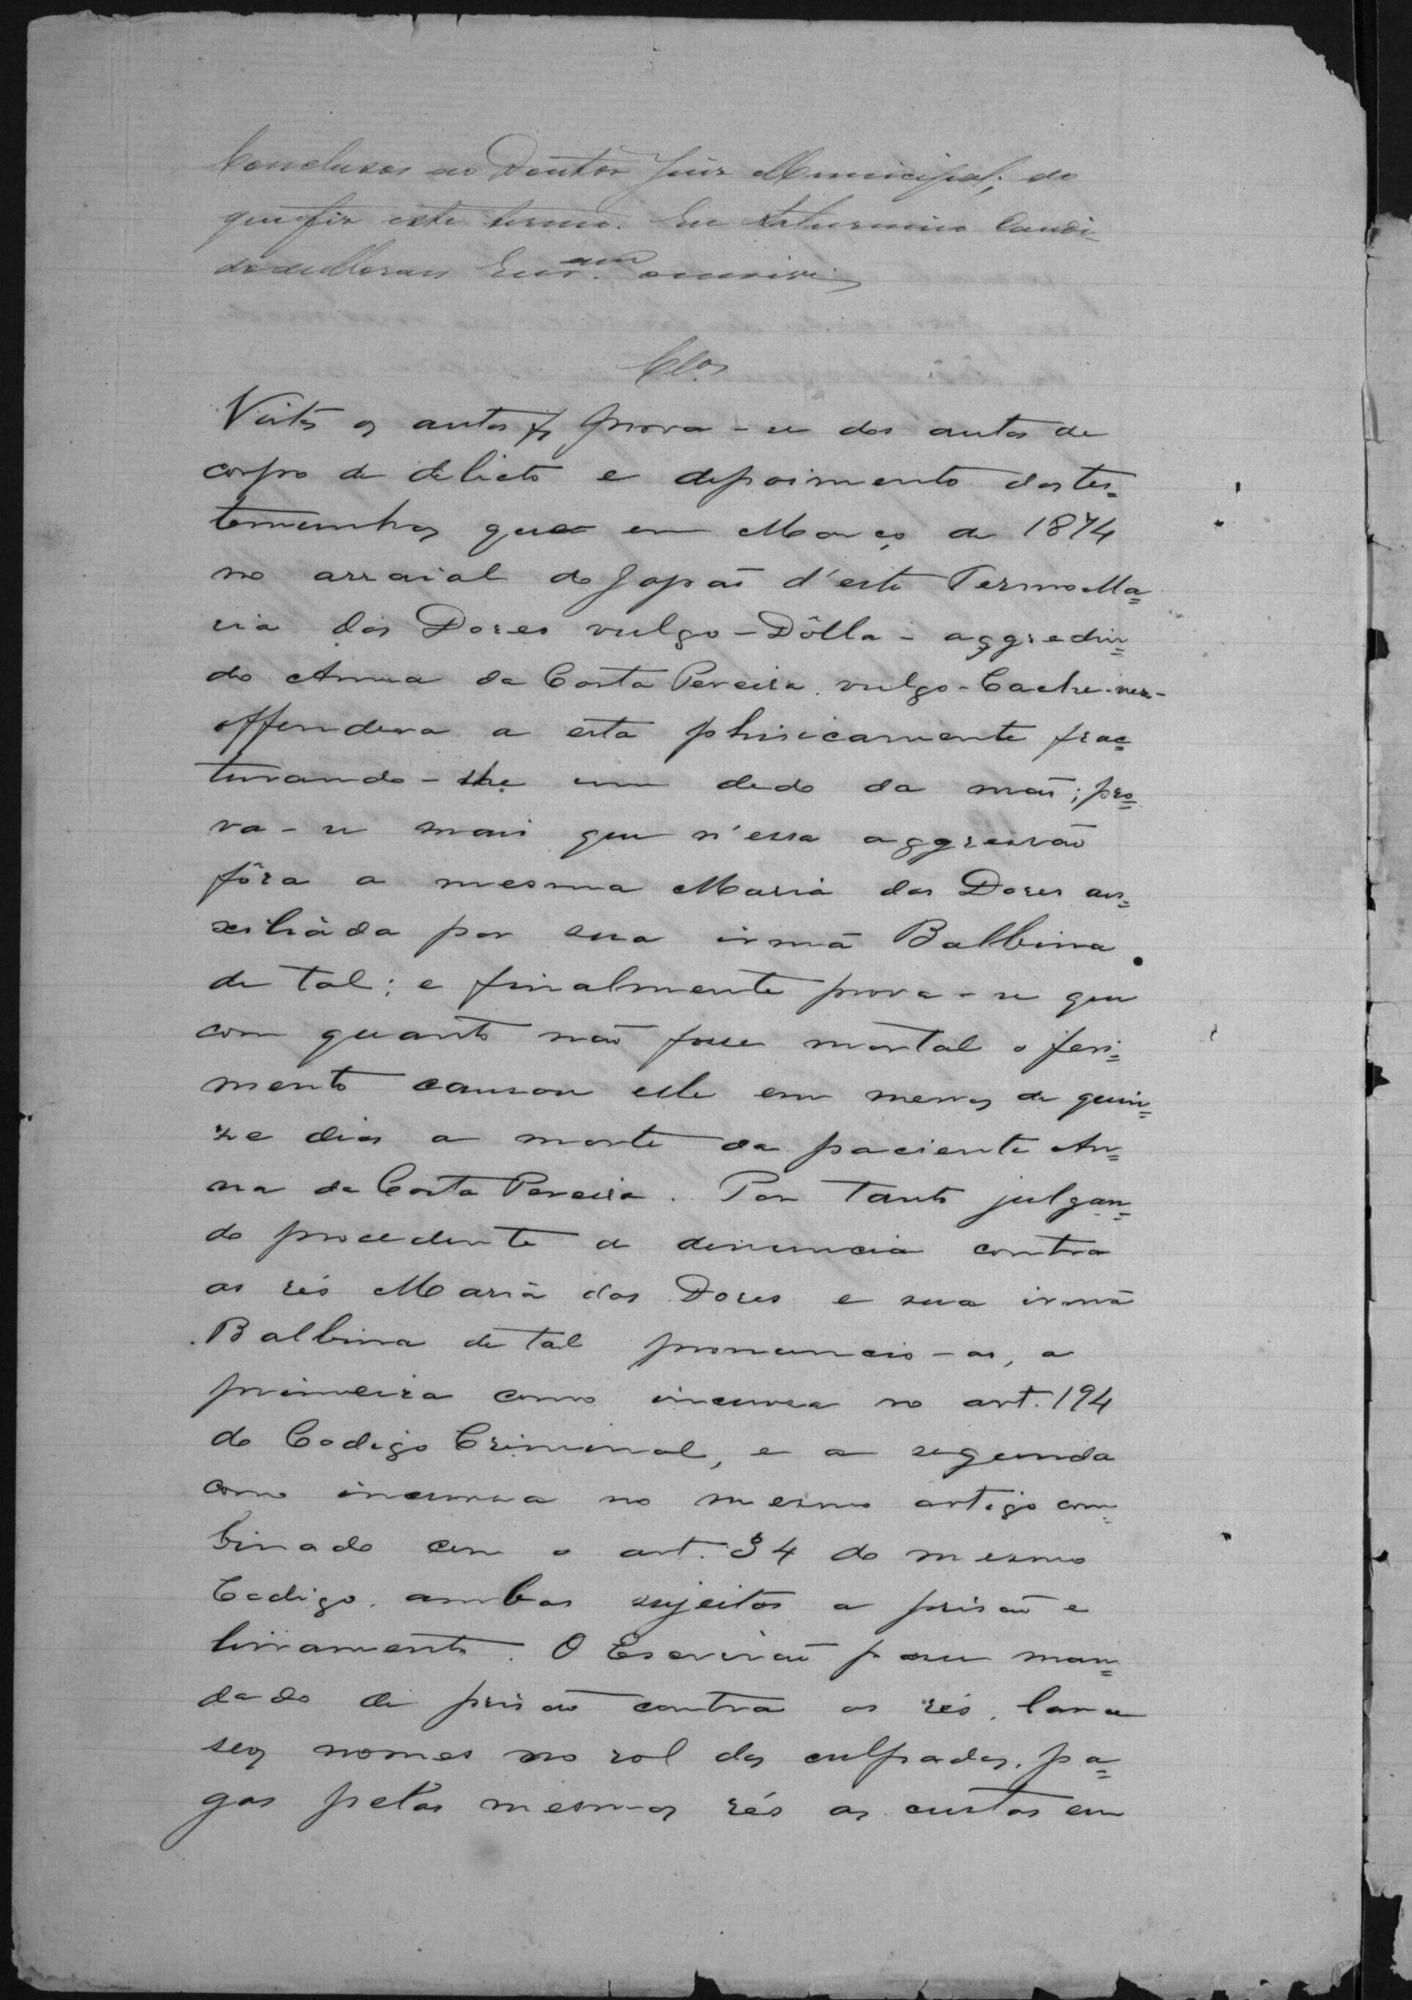 Conclusos ao Doutor Juiz Municipal; do
que fiz este termo. Eu Saturnino Candi-
do de Moraes Escr.am escrivi
Clos
Vistos os autos & prova-se dos autos de
corpo de delicto e depoimento das tes=
temunhas que em Março de 1874
no arraial do Japaõ d'este Termo Ma=
ria das Dores vulgo-Dôlla-aggredin=
do Anna da Costa Pereira, vulgo-
offendera a esta phisicamente frac=
turando-lhe um dedo da maõ; pro=
va-se mais que n'essa aggressão
fôra a mesma Maria das Dores au=
xiliada por sua irmã Balbina
de tal; e finalmente prova-se que
com quanto naõ fosse mortal o feri=
mento causou elle em menos de quin=
ze dias a morte da paciente An=
na da Costa Pereira. Por tanto julgan=
do procedente a denuncia contra
as rés Maria das Dores e sua irmã
Balbina de tal pronuncio-as, a
primeira como incursa no art. 194
do Codigo Criminal, e a segunda
como incursa no mesmo artigo com=
binado com o art. 34 do mesmo
Codigo, ambas sujeitas a prisaõ e
livramento. O Escrivaõ passe man=
dado de prisaõ contra as rés, lance
seos nomes no rol dos culpados, pa=
gas pelas mesmas rés as custas em